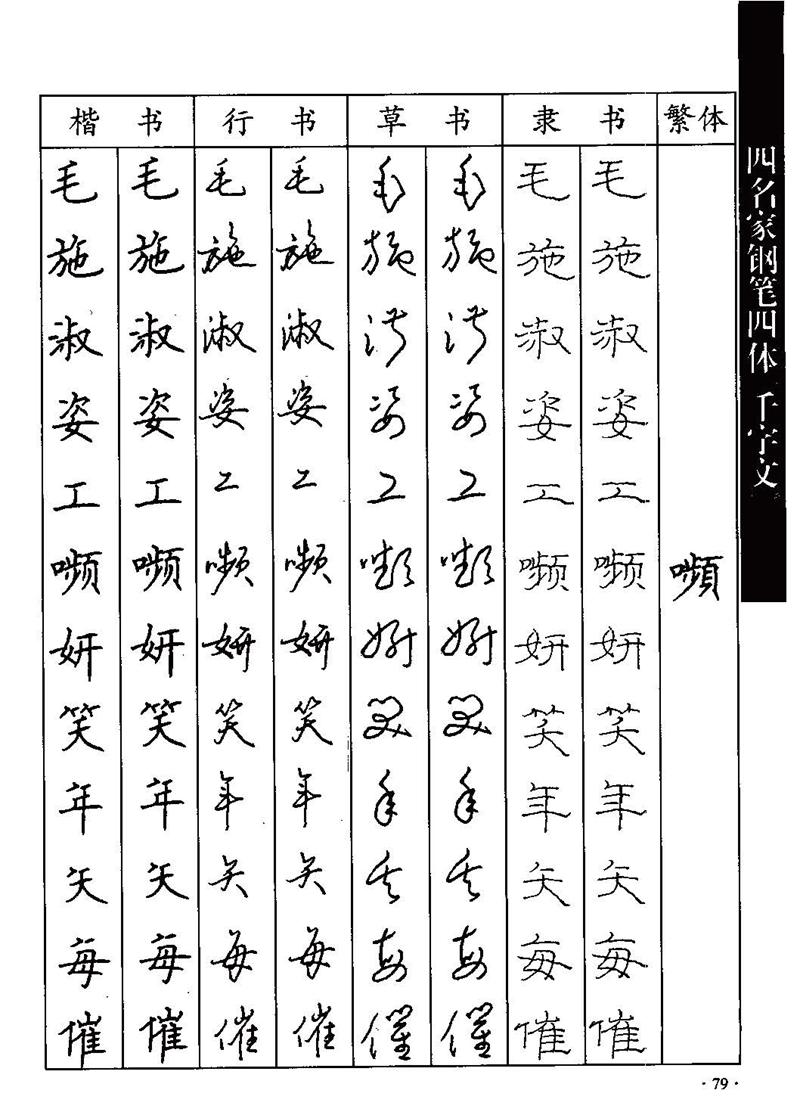 楷书 行书 草书 隶书 繁体
毛 毛 毛 毛 毛 毛 毛 毛
施 施 施 施 施 施 施 施
淑 淑 淑 淑 淑 淑 淑 淑
姿 姿 姿 姿 姿 姿 姿 姿
工 工 工 工 工 工 工 工
嚬 嚬 嚬 嚬 嚬 嚬 嚬 嚬 嚬
妍 妍 妍 妍 妍 妍 妍 妍
笑 笑 笑 笑 笑 笑 笑 笑
年 年 年 年 年 年 年 年
矢 矢 矢 矢 矢 矢 矢 矢
每 每 每 每 每 每 每 每
催 催 催 催 催 催 催 催
四名家钢笔四体 千字文
·79·